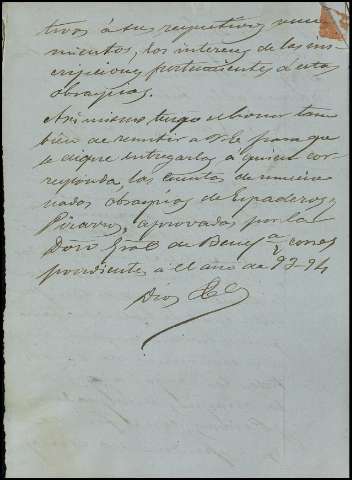 tivos á sus respectivos venci-
mientos, los intereses de las ins-
cripciones pertenecientes á estas
obras pias.
Asi mismo tengo el honor tam
bien de remitir a V.E. para que
se digne entregarlas á quien cor
responda, las cuentas de
nadas obras pias de Espaderos y
Pizarro, aprovadas por la
Dion Gral de Benefa y corres
pondientes a el año de 93-94
Dios &a